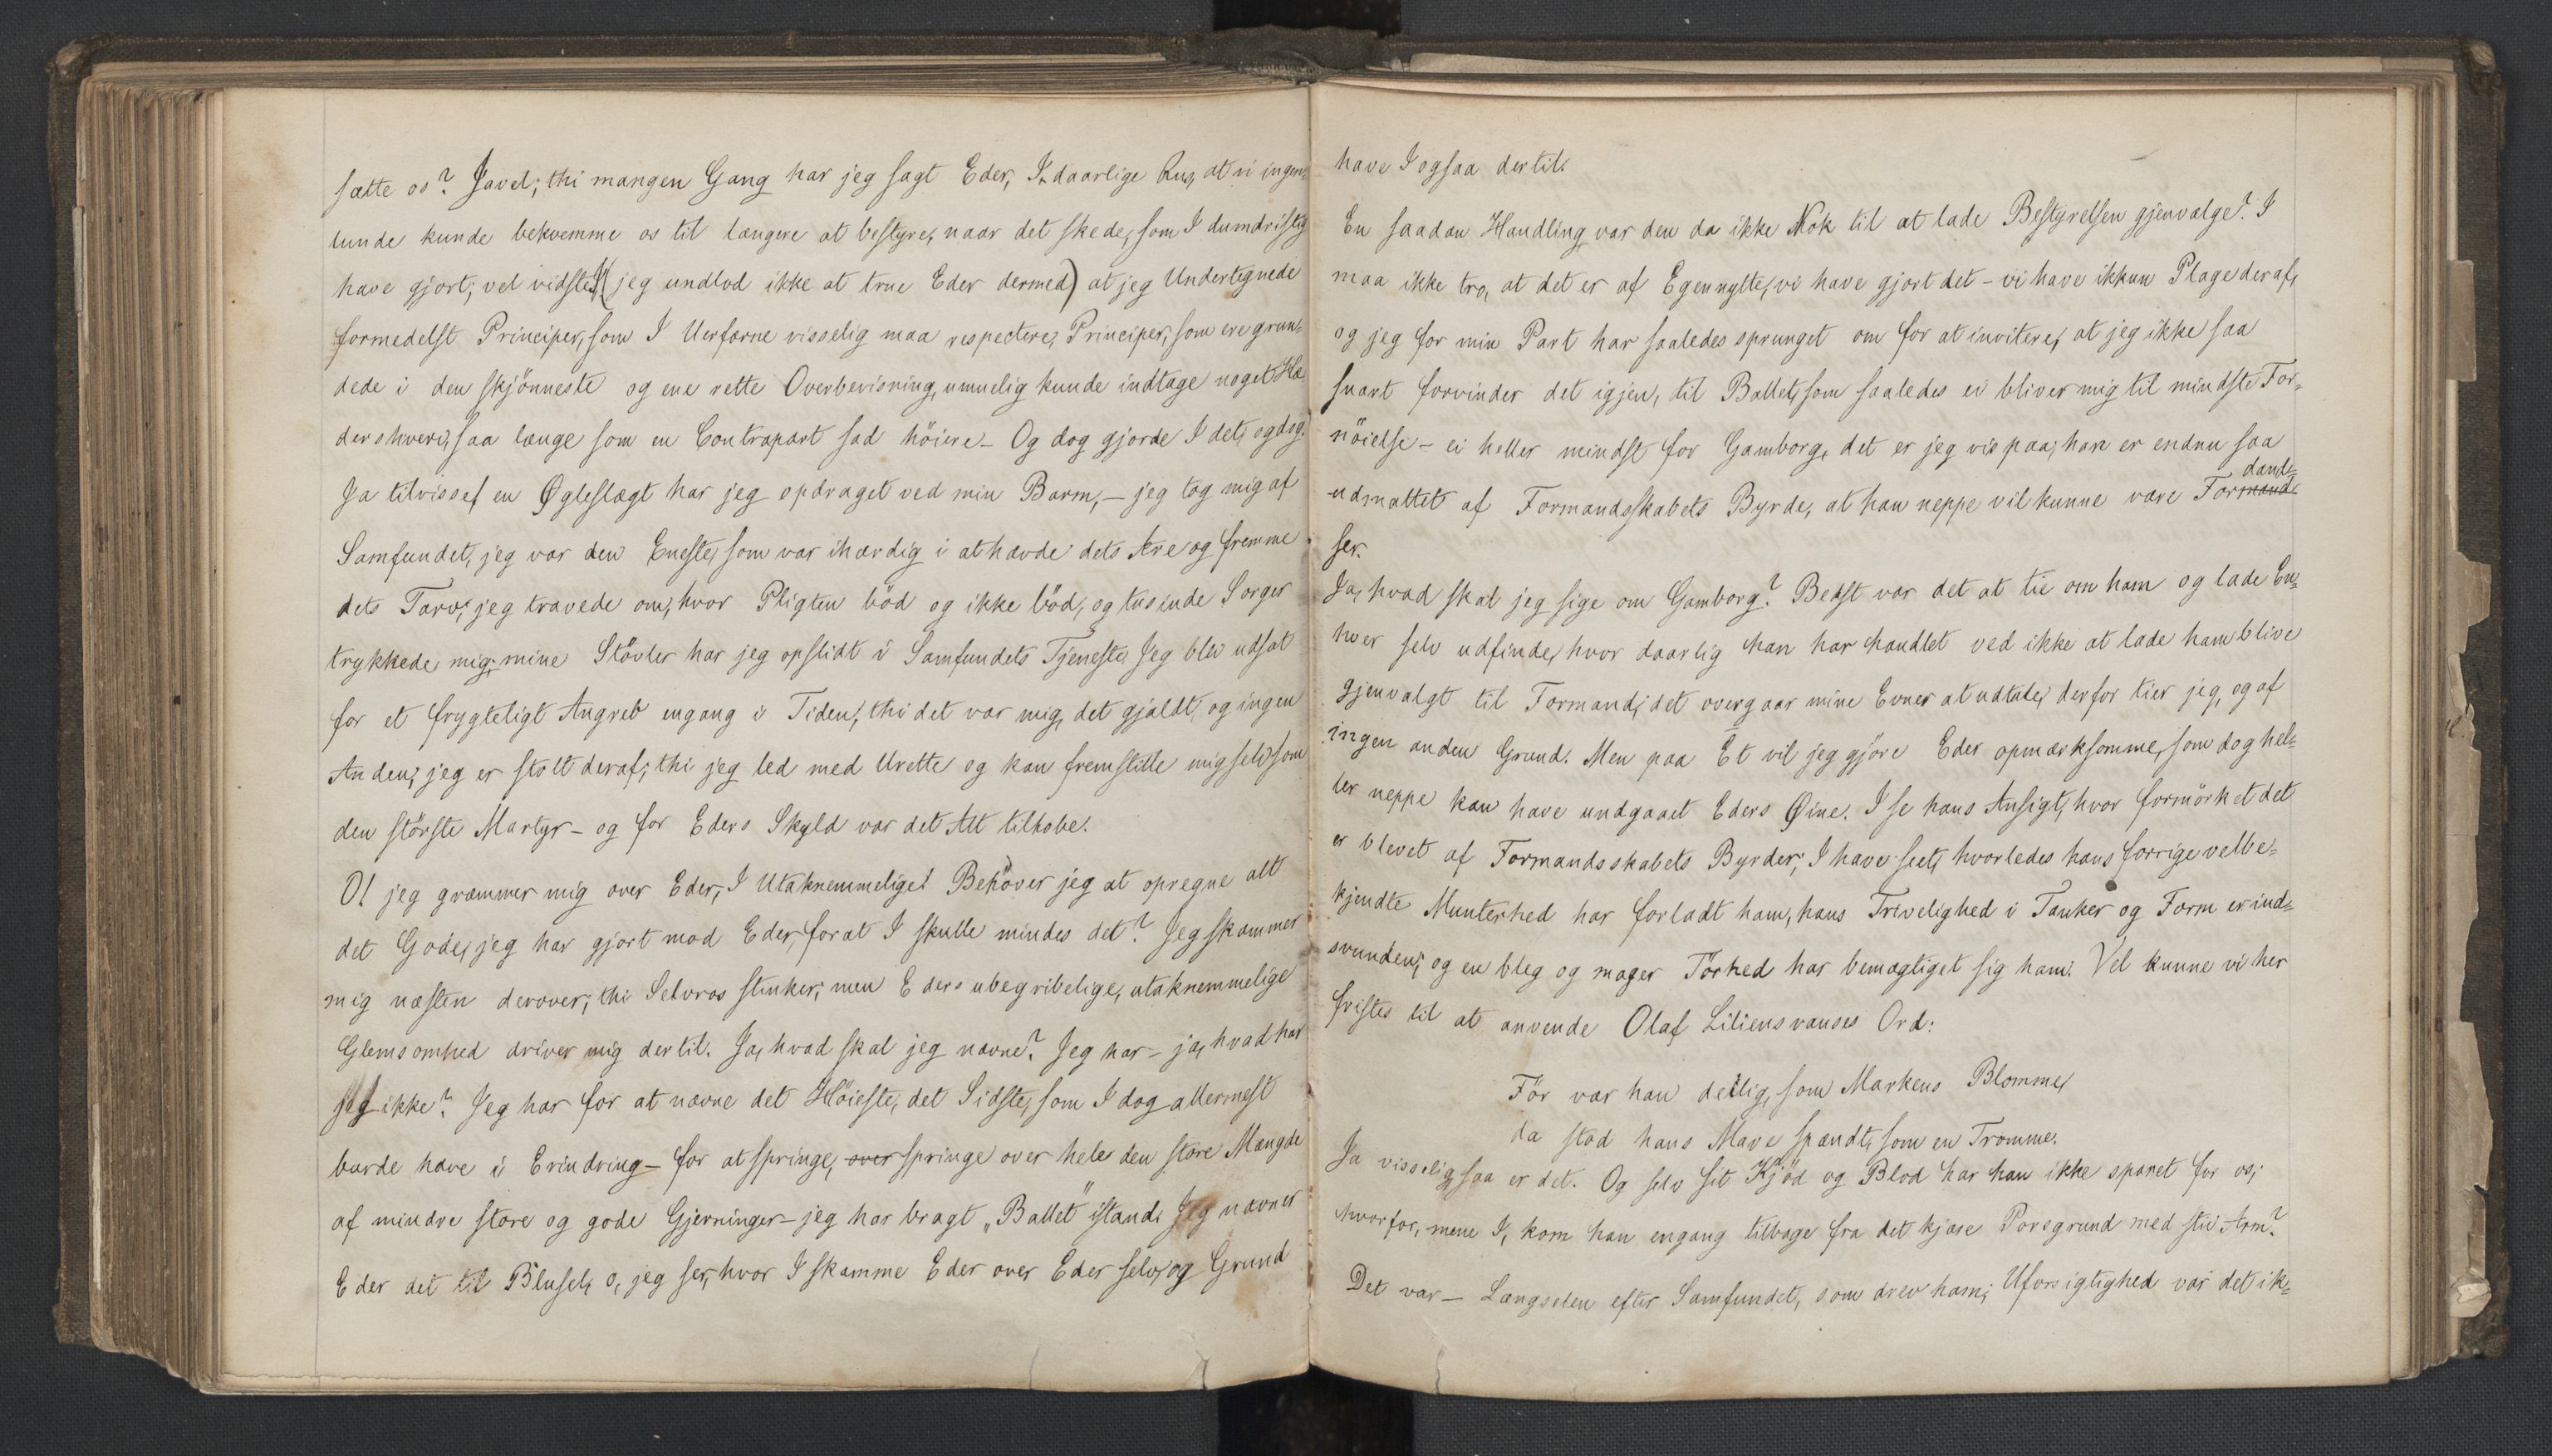 sætte os? Javel; thi mangen Gang har jeg sagt Eder, I daarlige, at vi ingen-
lunde kunde bekvemme os til længere at bestyre, naar det skede, som I dumdristig
have gjort; vel vidste I (jeg undlod ikke at true Eder dermed) at jeg Undertegnede
formedelst Principer, som I Uerfarne visselig maa respectere, Principer, som ere grun-
dede i den skjönneste og ene rette Overbevisning, umuelig kunde indtage noget Hæ-
dershverv, saa længe som en Contrapart sad höiere – Og dog gjorde I det, og dog!
Ja tilvisse, en Øgleslægt har jeg opdraget ved min Barm, – jeg tog mig af
Samfundet, jeg var den Eneste, som var ihærdig i at hævde dets Ære og fremme
dets Tarv; jeg travede om, hvor Pligten böd og ikke böd, og tusinde Sorger
trykkede mig; mine Stövler har jeg opslidt i Samfundets Tjeneste. Jeg blev udsat
for et frygteligt Angreb engang i Tiden, thi det var mig, det gjaldt, og ingen
Anden; jeg er stolt deraf; thi jeg led med Urette og kan fremstille mig selv som
den störste Martyr – og for Eders Skyld var det Alt tilhobe.
O! jeg græmmer mig over Eder, I Utaknemmelige! Behöver jeg at opregne alt
det Gode, jeg har gjort mod Eder, forat I skulle mindes det? Jeg skammer
mig næsten derover; thi Selvros stinker; men Eders ubegribelige, utaknemmelige
Glemsomhed driver mig dertil. Ja, hvad skal jeg nævne? Jeg har – ja, hvad har
jeg ikke? Jeg har for at nævne det Höieste, det Sidste, som I dog allermest
burde have i Erindring – for at springe, over springe over hele den store Mængde
af mindre store og gode Gjerninger – jeg har bragt „Ballet" istand. Jeg nævner
Eder det til Blusel, o, jeg ser, hvor I skamme Eder over Eder selv, og Grund
have I ogsaa dertil.
En saadan Handling var den da ikke Nok til at lade Bestyrelsen gjenvælge? I
maa ikke tro, at det er af Egennytte, vi have gjort det – vi have ikkun Plage deraf,
og jeg for min Part har saaledes sprunget om for at invitere, at jeg ikke saa
snart forvinder det igjen, til Ballet, som saaledes ei bliver mig til mindste For-
nöielse – ei heller mindst for Gamborg, det er jeg vis paa; han er endnu saa
udmattet af Formandsskabets Byrde, at han neppe vil kunne være Formand-
dand-
ser.
Ja, hvad skal jeg sige om Gamborg? Bedst var det at tie om ham og lade En-
hver selv udfinde, hvor daarlig han har handlet ved ikke at lade ham blive
gjenvalgt til Formand; det overgaar mine Evner at udtale; derfor tier jeg, og af
ingen anden Grund. Men paa Et vil jeg gjöre Eder opmærksomme, som dog hel-
ler neppe kan have undgaaet Eders Øine. I se hans Ansigt, hvor formörket det
er blevet af Formandsskabets Byrder; I have seet, hvorledes hans forrige velbe-
kjendte Munterhed har forladt ham, hans Trivelighed i Tanker og Form er ind-
svunden; og en bleg og mager Törhed har bemægtiget sig ham. Vel kunne vi her
fristes til at anvende Olaf Liliensvanses Ord:
För var han deilig, som Markens Blomme,
da stod hans Mave spændt, som en Tromme.
Ja visselig, saa er det. Og selv sit Kjöd og Blod har han ikke sparet for os;
hvorfor, mene I, kom han engang tilbage fra det kjære Porsgrund med stiv Arm?
Det var – Længselen efter Samfundet, som drev ham; Uforsigtighed var det ik-